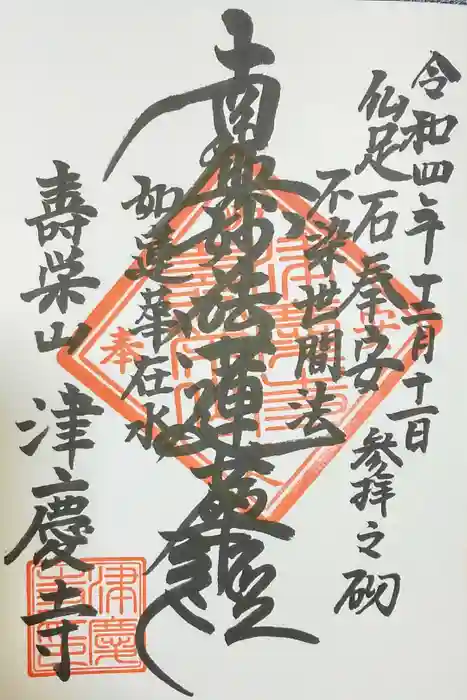 令和四年十二月十一日
仏足石奉安 参拝之砌
不染世間法
南無妙法蓮華経
如蓮華在水
奉
壽栄山 津慶寺
津慶寺